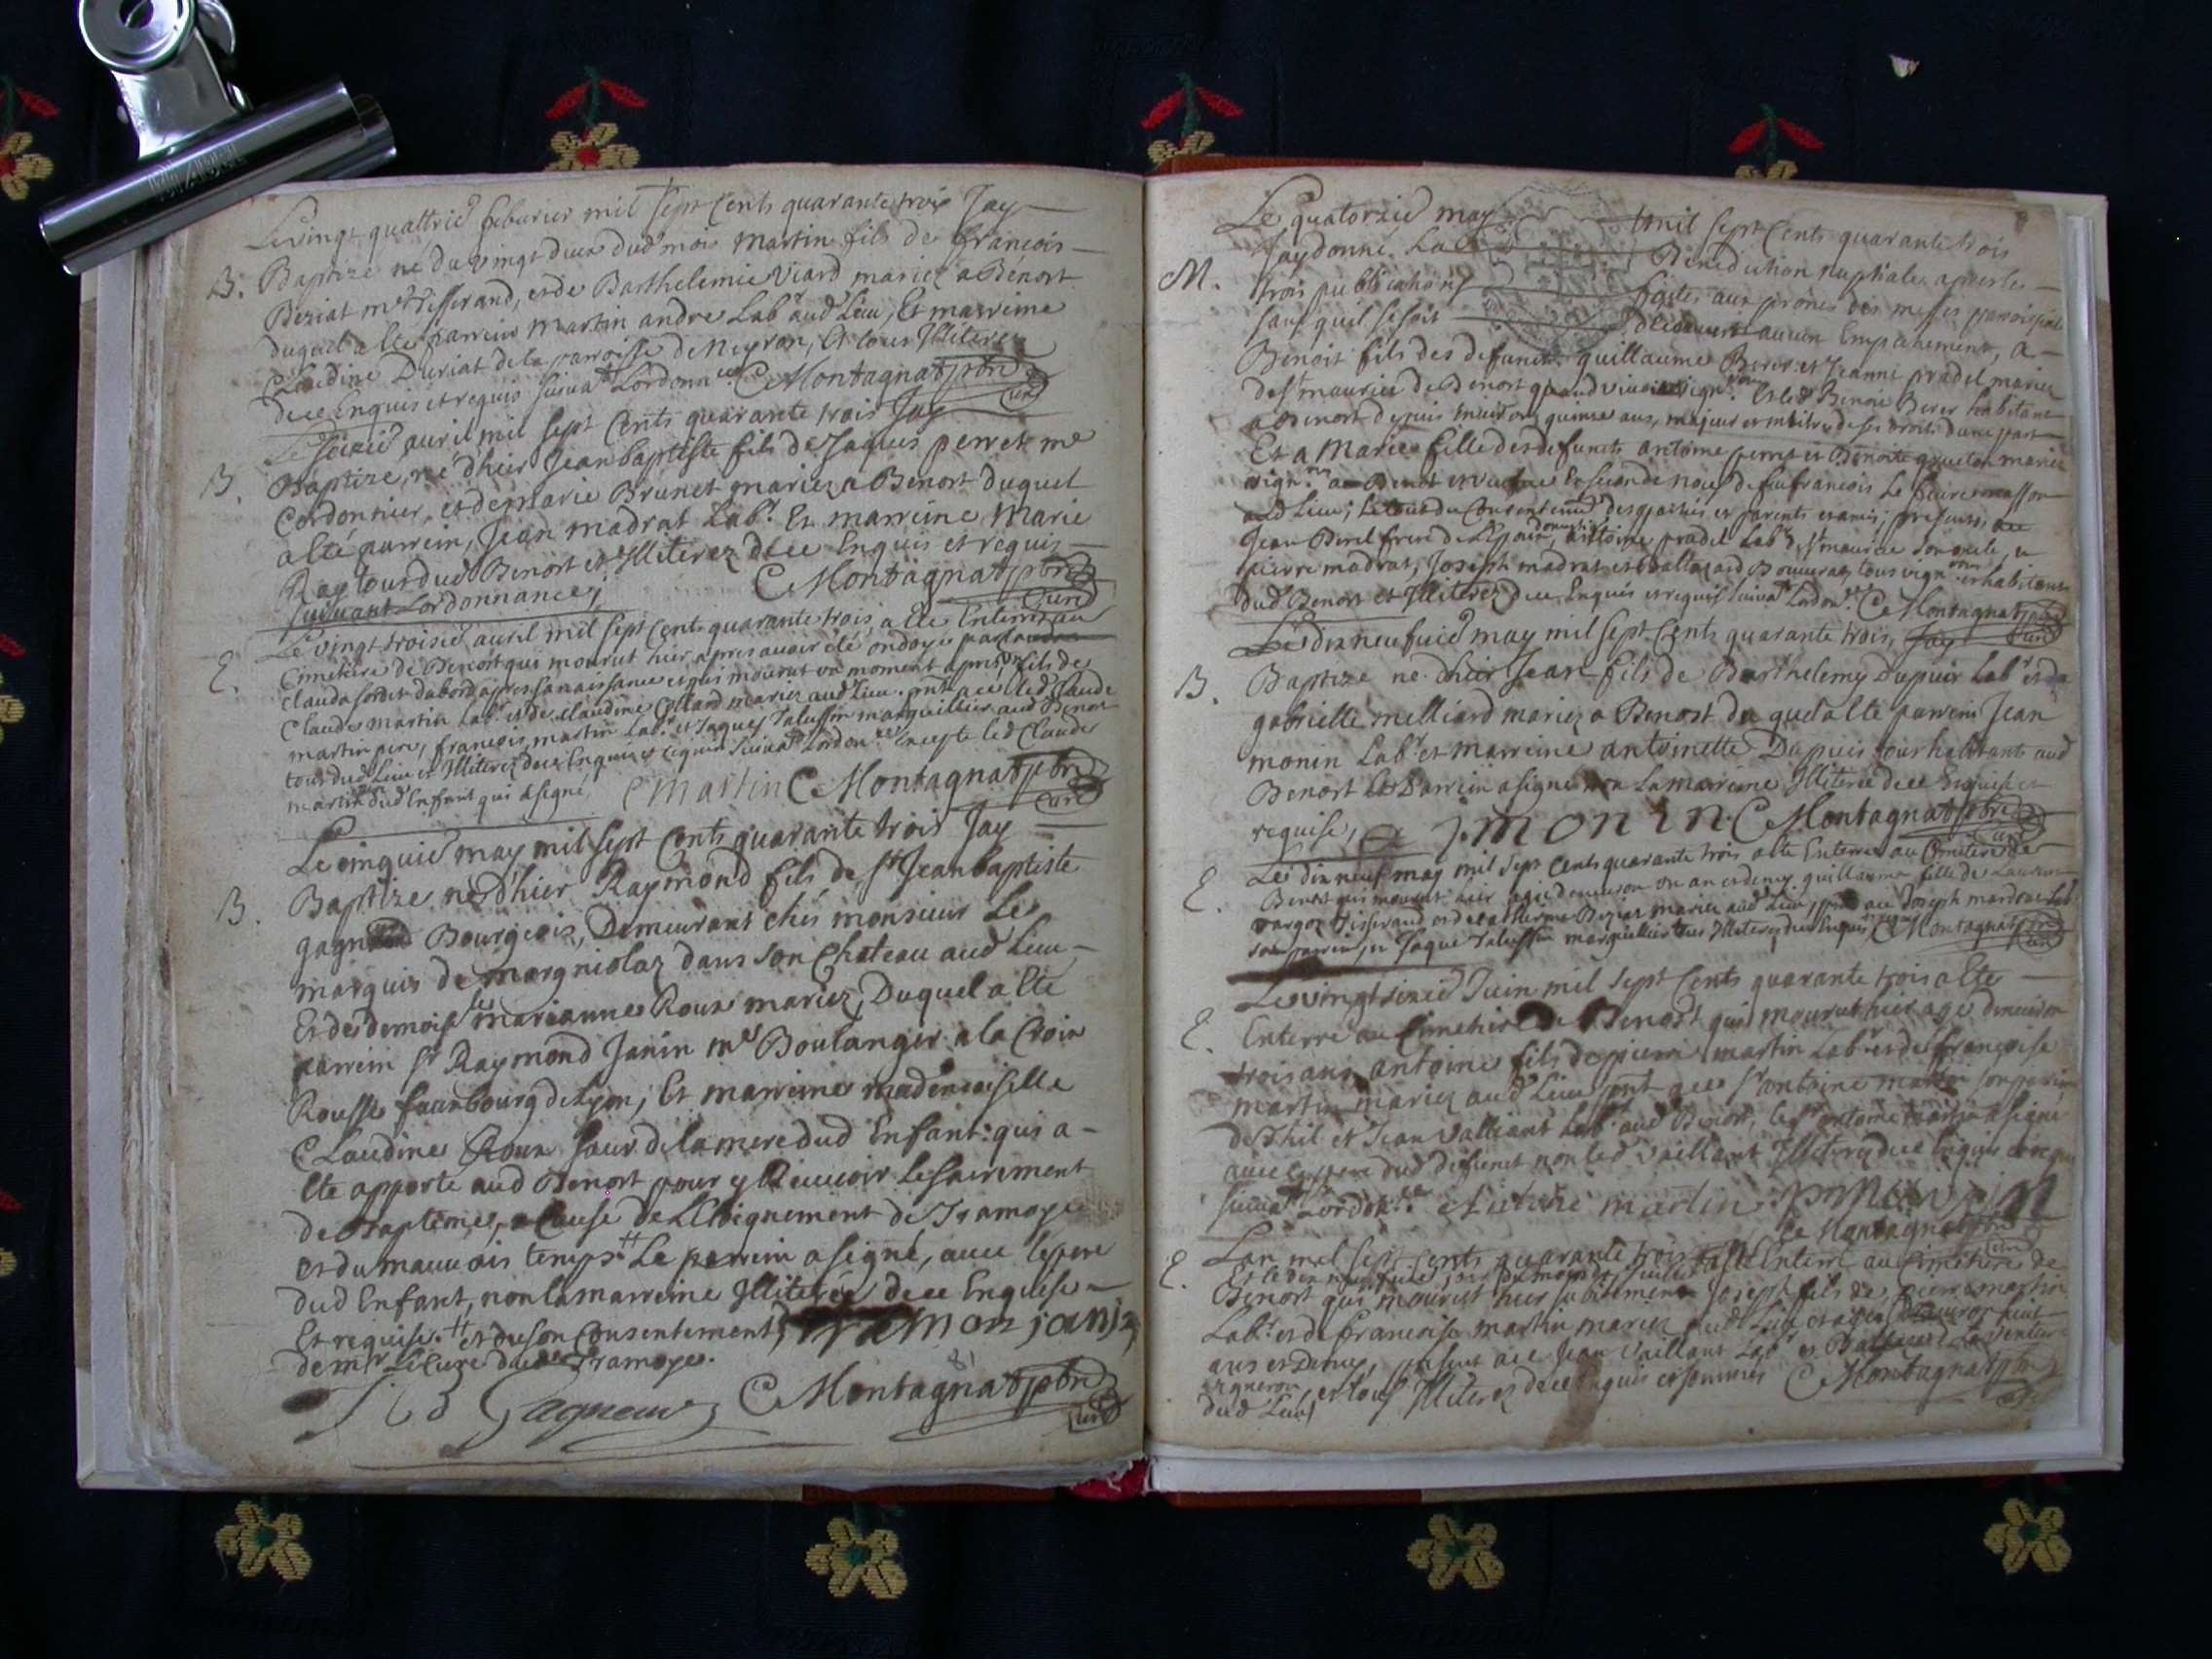 Le vingt quattrie feburier mil sept Cents quarante trois Jay
B. Baptizé né du vingt deux dud moi Martin fils de francois
Beziat me Tisserand, et de Barthelemie Viard mariez a Bénost
duquel a été parrein Martin andre Labr aud Lieu, Et marreine
Claudine Duriat de la parroisse de Neyron, Et tous Illiterez
de ce Enquis et requis suivat Lordonnce C Montagnat ptre
curé
Le seizie auril mil sept Cents quarante trois Jay
B. Baptize, né d'hier Jean baptiste fils de Jaques perret me
Cordonnier, et de marie Brunet mariez a Benost duquel
a été parrein, Jean madrat Labr Et marreine Marie
Ray tous dud Benost et Illiterez de ce Enquis et requis
suivant Lordonnance; C Montagnat ptre
curé
Le vingt troisie auril mil sept Cents quarante trois a ete Enterré au
E. Cimetiere de Benost qui mourut hier apres auoir été ondoyé par
clauda sordet dabord apres sa naissance et qui mourut un moment apres un fils de
Claude martin Labr et de Claudine Collard mariez aud Lieu. pnt a ce led Claude
martin pere, francois martin Labr et Jaques Talusson marguillier aud Benost
tous dud Lieu et Illiterez de ce Enquis et requis suivat Lordonce Excepte led Claude
martin dud Enfant qui a signé, C martin C Montagnat ptre
curé
Le cinquie may mil sept Cents quarante trois Jay
B. Baptize né d'hier Raymond fils de Sr Jean baptiste
Bourgeois, Demeurant chés monsieur Le
marquis de margniolaz dans son Chateau aud Lieu
Et de demoisle marianne Roux mariez, Duquel a ete
parrein Sr Raymond Janin me Boulanger a la Croix
Rousse fauxbourg de Lyon; Et marreine mademoiselle
Claudine Roux sœur de la mere dud Enfant: qui a
ete apporte aud Benost pour y Receuoir le sacrement
de Bapteme, a Cause de L'Eloignement de Tramoye
et du mauuais temps # Le parrein a signé, auec le pere
dud Enfant, non la marreine Illiterée de ce Enquise
Et requise. # et du son Consentement
de mr le Cure dud Tramoye. ramon janin
J B Gagneur C Montagnat ptre
curé
Le quatorzie may mil sept Cents quarante trois
M. Jay donné La Benediction nuptiale apres les
trois publications faites aux prones des messes parroissiales
sans quil se soit découuert aucun Empechement, a
Benoit fils des defuncts guillaume Berer et Jeanne pradel mariez
de St maurice de Benost quand viuoient vignons Et led Benoit Berer habitant
a Benost depuis enuiron quinze ans, majeur et maitre de ses droits dune part
Et a Marie fille des defuncts antoine et Benoite mariez
vignons a Benost et veufue En seconde noces de feu francois Le feure masson
aud Lieu; Le tout du Consentemt des parties et parents et amis; presents
Jean Berel frere de Lepoux, antoine pradel Labr de St maurice son oncle, et
pierre madrat, Joseph madrat et Baltazard Bouuerat, tous vignons et habitants
dud Benost et Illiterez de ce Enquis et requis suivat Lordonce C Montagnat ptre
curé
Le dix neufuie may mil sept Cents quarante trois, Jay
B. Baptize né d'hier Jean fils de Barthelemy Dupuis Labr et de
gabrielle milliard mariez a Benost du quel a ete parrein Jean
monin Labr et marreine antoinette Dupuis tous habitants aud
Benost le Parrein a signe non La marreine Illiterée de ce Enquise et
requise, j. monin. C Montagnat ptre
curé
Le dix neuf may mil sept Cents quarante trois a ete Enterré au Cimetiere de
E. Benost qui mourut hier agée denuiron un an et demy guillauma fille de Laurent
vargoz Tisserand et de catherine Beziat mariez aud Lieu, pnt a ce Joseph mardrat Labr
son parrein, et Jaque Talusson marguillier tous Illiterez de ce Enquis C Montagnat ptre
curé
Le vingt sixie Juin mil sept Cents quarante trois a ete
E. Enterré au Cimetiere de Benost qui mourut hier age denuiron
trois ans, antoine fils de pierre martin Labr et de francoise
martin mariez aud Lieu pnt a ce Sr antoine martin son parrein
et Jean Vaillant Labr aud Benost, le sr antoine martin a signé
auec le pere dud defunct non led vaillant Illiterez de ce Enquis et requis
suivat Lordonce. Antoine martin p martin
C Montagnat ptre
curé
Lan mil sept cents quarante trois a été Enterré au Cimetiere de
E. Et le dix neufuie jour du mois de Juillet
Benost qui mourut hier subitement Joseph fils de pierre martin
Labr et de francoise martin mariez aud Lieu et agé denuiron huit
ans et Demy, présent a ce Jean Vaillant Labr et
vigneron et tous Illiterez de ce Enquis et sommés C Montagnat ptre
dud Lieu curé